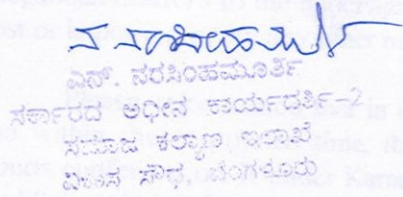 ಎನ್. ನರಸಿಂಹಮೂರ್ತಿ
ಸರ್ಕಾರದ ಅಧೀನ ಕಾರ್ಯದರ್ಶಿ-2
ಸಮಾಜ ಕಲ್ಯಾಣ ಇಲಾಖೆ
ವಿಕಾಸ ಸೌಧ, ಬೆಂಗಳೂರು